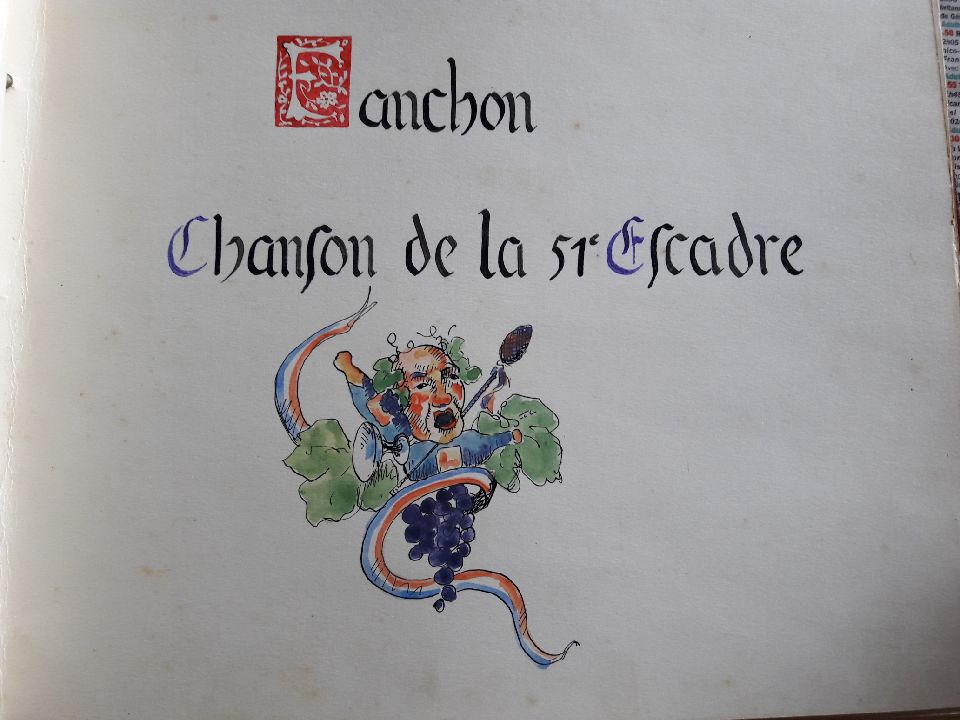 Fanchon
Chanson de la 51e Escadre